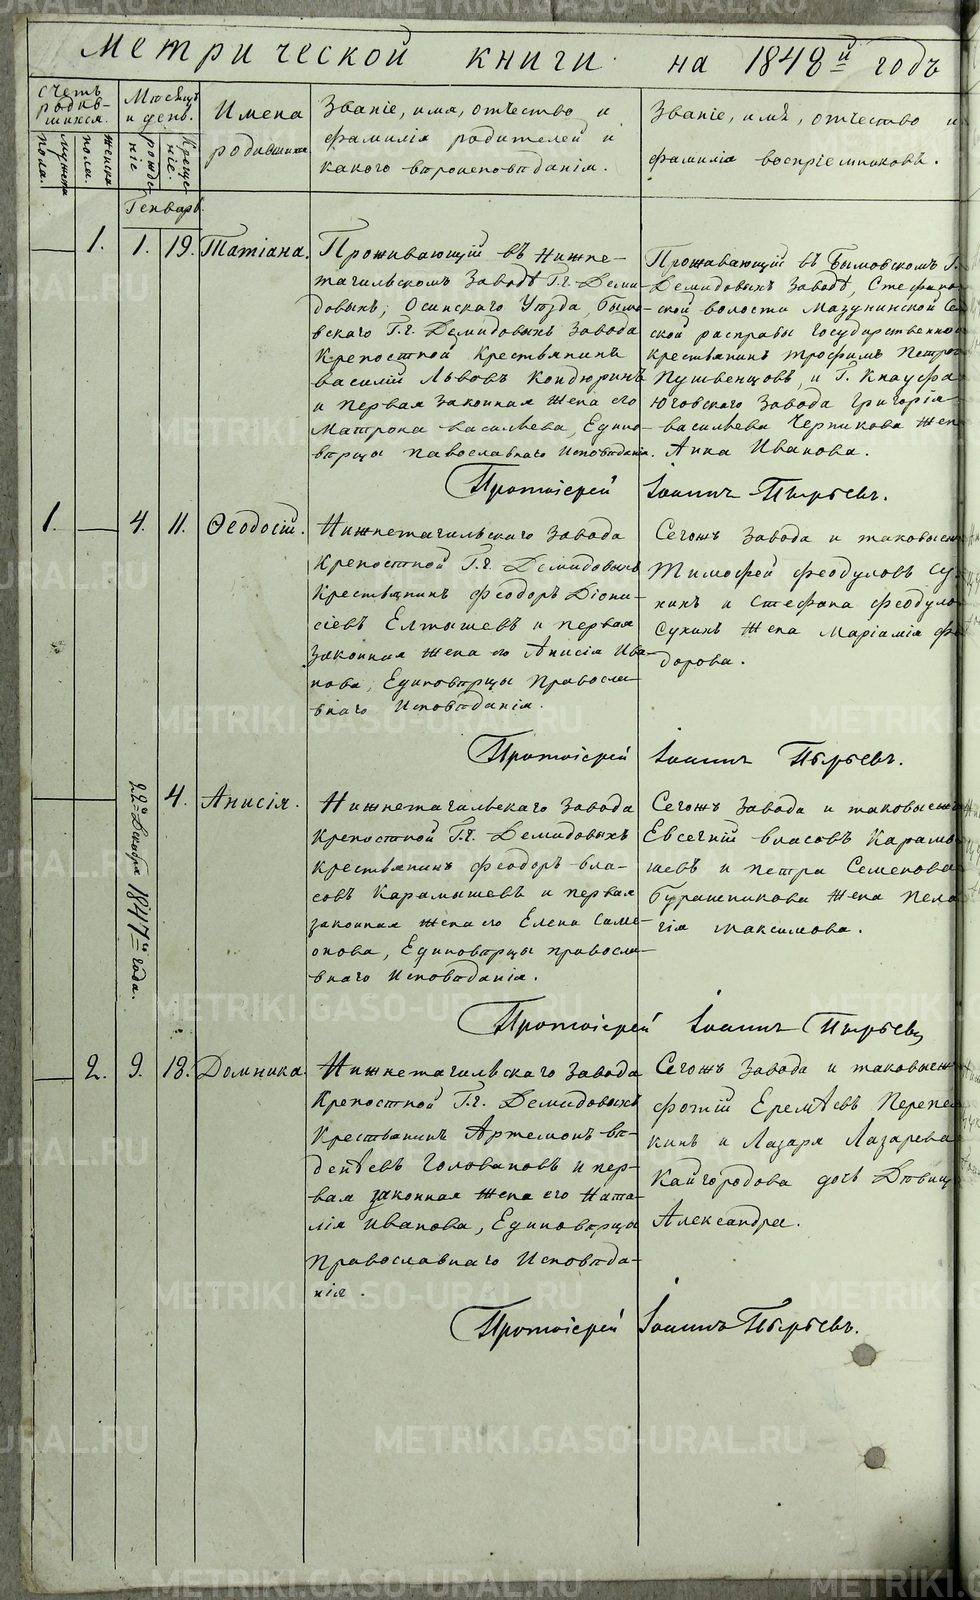 Метрической книги на 1848й годъ
Счетъ родив-шихся.
Мужеска пола.
Женска пола.
Мѣсяцъ и день.
Рожденіе
Крещеніе.
Имена родившихся
Званіе, имя, отчество и
фамилія родителей и
какого вѣроисповѣданія.
Званіе, имя, отчество и
фамилія воспріемниковъ.
Генварь.
1. 1. 19. Татіана.
Проживающій въ Нижне-
тагильскомъ Заводѣ Г.г. Деми-
довыхъ; Осинскаго Уѣзда, Бымо-
вскаго Г.г. Демидовыхъ Завода
Крепостной крестьянинъ
Василій Львовъ Кондюринъ
и первая законная жена его
Матрона Васильева, Едино-
вѣрцы павославнаго Исповѣданія.
Проживающій въ Бымовскомъ Г.
Демидовыхъ Заводѣ, Стефано-
ской волости Мазунинской Се
ской расправы государственно
крестьянинъ Трофимъ Петро
Пушвенцовъ, и Г. Кнауфа
Юговскаго Завода Григорія
Васильева Черникова жен
Анна Иванова.
Протоіерей Іоаннъ Пырьевъ.
1. 4. 11. Ѳеодосій.
Нижнетагильскаго Завода
Крепостной Г.г. Демидовыхъ
Крестьянинъ Феодоръ Діони-
сіевъ Елтышевъ и первая
законная жена его Анисія Ива-
нова, Единовѣрцы Правосла-
внаго Исповѣданія.
Сегожъ Завода и таковыеж
Тимофей Феодуловъ Су
хихъ и Стефана Феодуло
Сухихъ жена Маріамія Фе
дорова.
Протоіерей Іоаннъ Пырьевъ.
22го Декабря 1847го года.
4. Анисія.
Нижнетагильскаго Завода
Крепостной Г.г. Демидовыхъ
Крестьянинъ Феодоръ Вла-
совъ Карамышевъ и первая
законная жена его Елена Симе-
онова, Единовѣрцы правосла-
внаго Исповѣданія.
Сегожъ Завода и таковыеж
Евсегній Власовъ Карамы
шевъ и Петра Семенова
Бурашникова жена Пела
гія Максимова.
Протоіерей Іоаннъ Пырьевъ
2. 9. 18. Домника.
Нижнетагильскаго Завода
Крепостной Г.г. Демидовыхъ
Крестьянинъ Артемонъ Ав-
денѣевъ Головановъ и пер-
вая законная жена его Ната-
лія Иванова, Единовѣрцы
Православнаго Исповѣда-
нія.
Сегожъ Завода и таковыеж
Фотій Еремѣевъ Перепе
кинъ и Лазаря Лазарева
Кайгородова дочь Дѣвиц
Александра.
Протоіерей Іоаннъ Пырьевъ.
METRIKI.GASO-URAL.RU